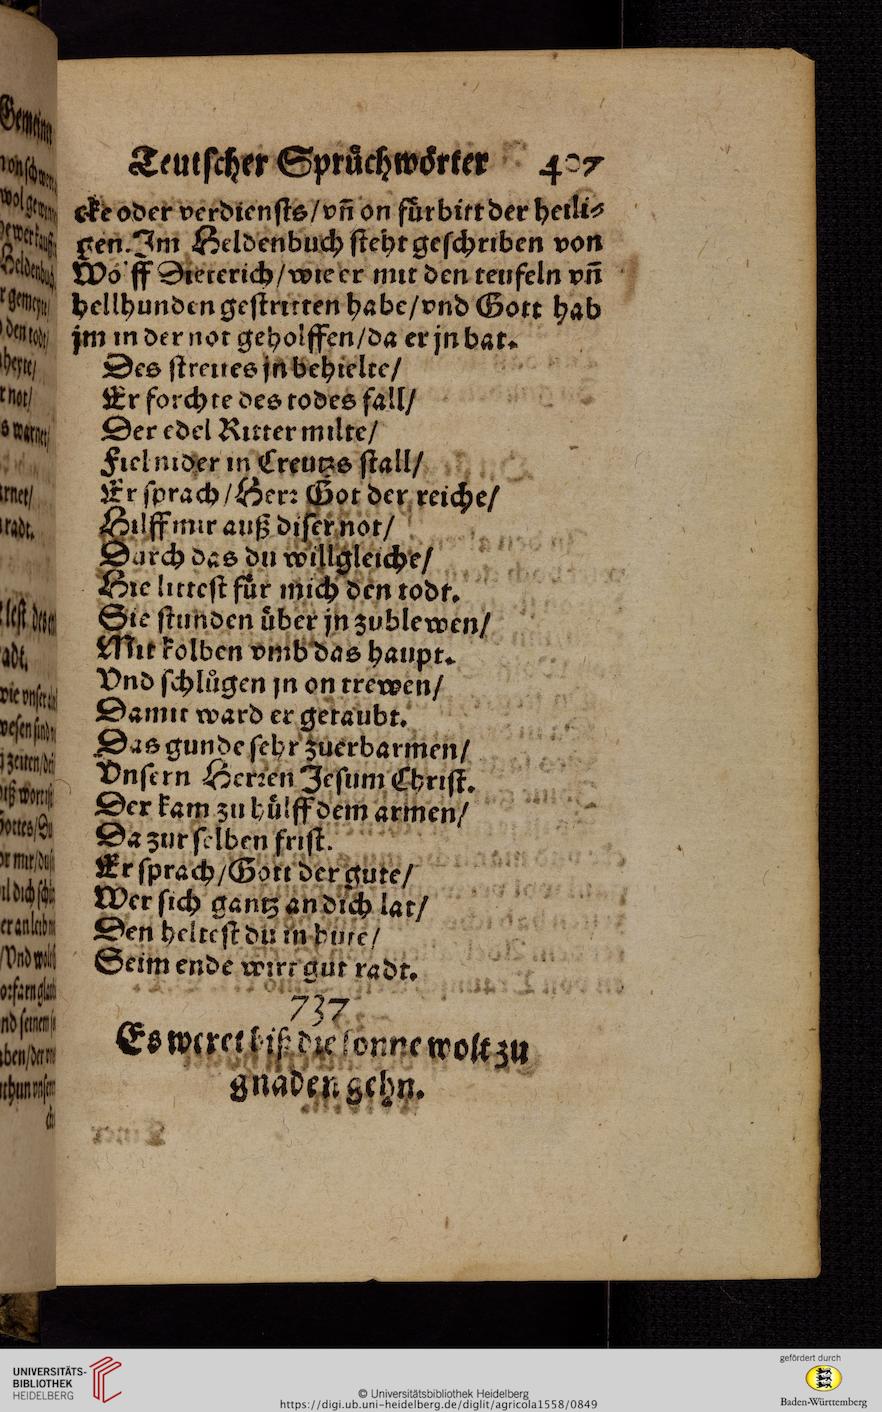 Teutſcher Sprüchwörter 407
cke oder verdienſts/vn̄ on fürbitt der heili⸗
gen. Im Heldenbuch ſteht geſchriben von
Wolff Dieterich/wie er mit den teufeln vn̄
hellhunden geſtritten habe/vnd Gott hab
jm in der not geholffen/da er jn bat.
Des ſtreites jn behielte/
Er forchte des todes fall/
Der edel Ritter milte/
Fiel nider in Creutzs ſtall/
Er ſprach/Herr Got der reiche/
Hilff mir auß diſer not/
Durch das du willgleiche/
Hie litteſt für mich den todt.
Sie ſtunden über jn zublewen/
Mit kolben vmb das haupt.
Vnd ſchlůgen jn on trewen/
Damit ward er getaubt.
Das gunde ſehr zuerbarmen/
Vnſern Herren Jeſum Chriſt.
Der kam zu hülff dem armen/
Da zur ſelben friſt.
Er ſprach/Gott der gute/
Wer ſich gantz an dich lat/
Den helteſt du in hute/
Seim ende wirt gut radt.
737
Es weret biß die ſonne wolt zu
gnaden gehn.
UNIVERSITÄTS-
BIBLIOTHEK
HEIDELBERG
© Universitätsbibliothek Heidelberg
https://digi.ub.uni-heidelberg.de/diglit/agricola1558/0849
gefördert durch
Baden-Württemberg